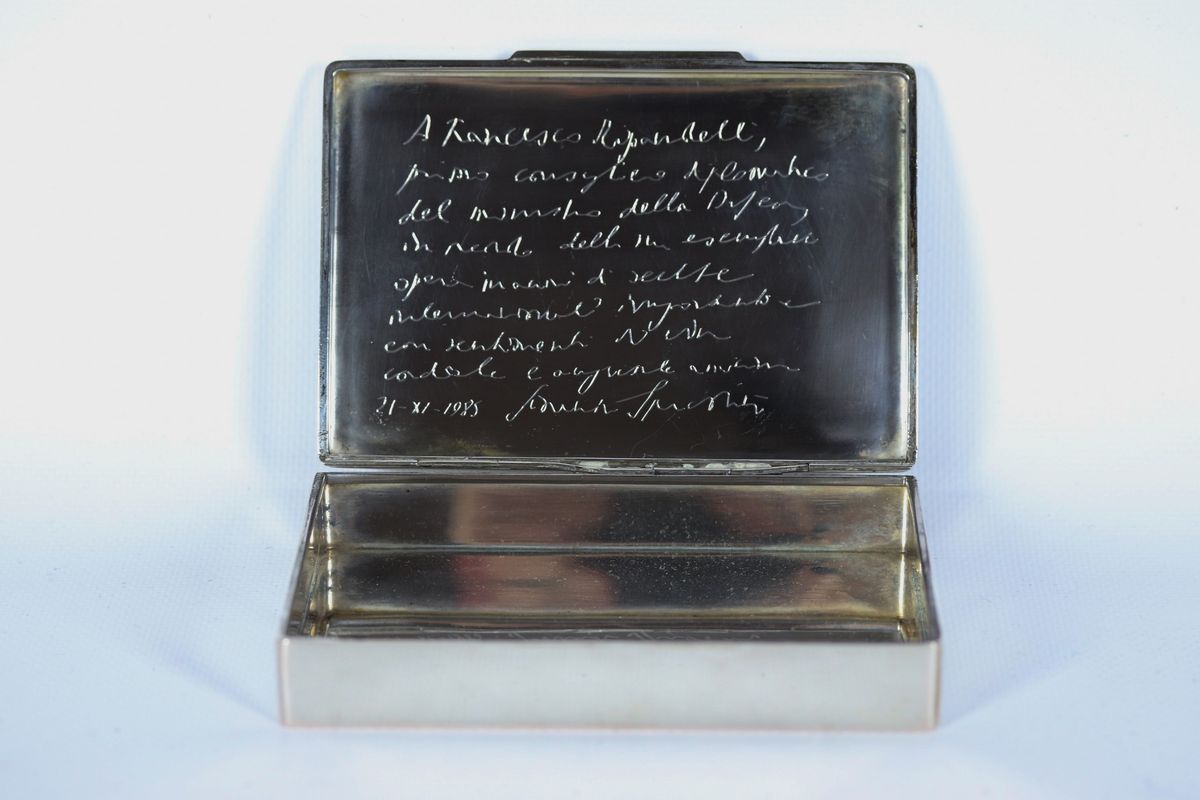 A Francesco Ripandelli,
primo consigliere diplomatico
del ministro della Difesa,
in ricordo della sua esemplare
opera in anni di scelte
internazionali importanti e
con sentimenti di
cordiale e amicizia
21-XI-1985 Giovanni Spadolini